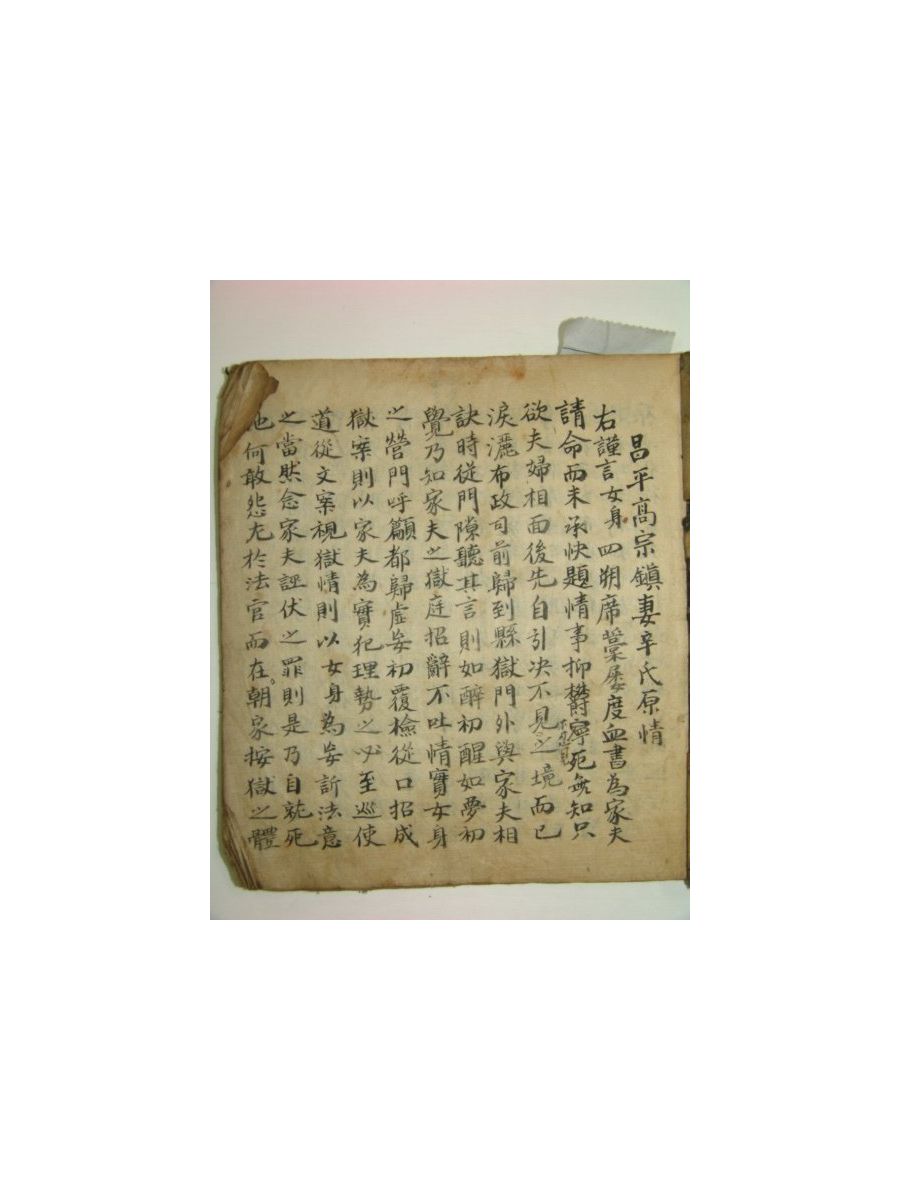 昌平高宗鎭妻辛氏原情
右謹言女身四朔席藁屡度血書為家夫
請命而未承快題情事抑欝寧死無知只
欲夫婦相面後先自引决不見之境而已
淚灑布政司前歸到縣獄門外與家夫相
訣時從門隙聽其言則如醉初醒如夢初
覺乃知家夫之獄庭招辭不吐情實女身
之營門呼籲都歸虛妄初覆檢從口招成
獄案則以家夫為實犯理勢之必至巡使
道從文案視獄情則以女身為妄訴法意
之當然念家夫誣伏之罪則是乃自就死
地何敢怨尤於法官而在朝家按獄之體